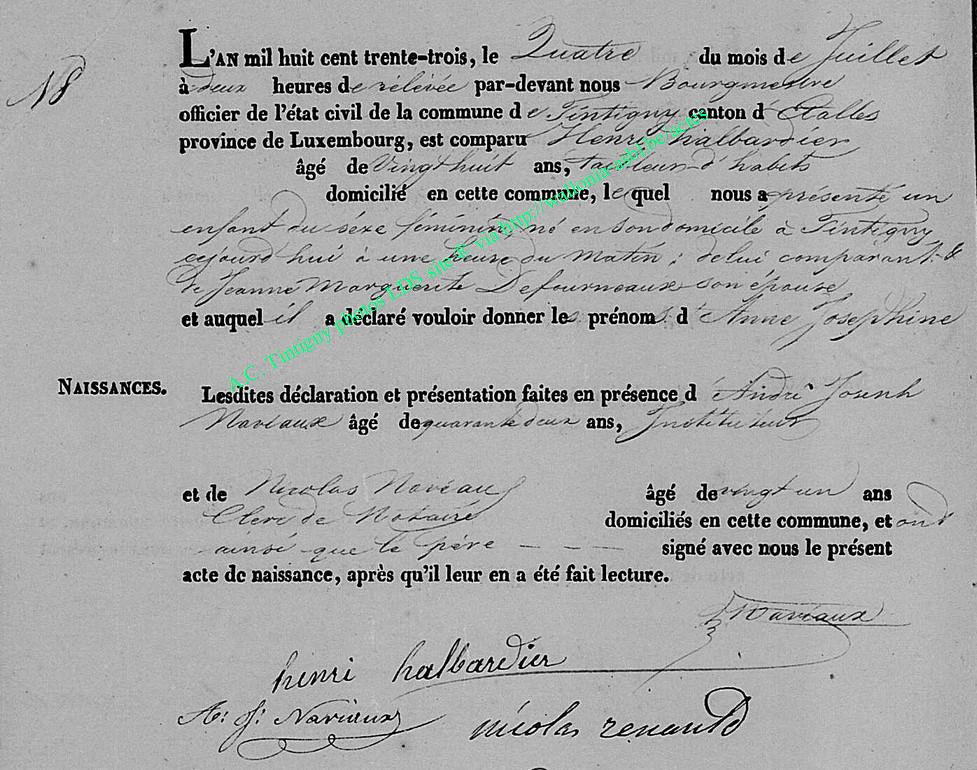 N 8
L'AN mil huit cent trente-trois, le Quatre du mois de Juillet
à deux heures de rélévée par-devant nous Bourgmestre
officier de l'état civil de la commune de Tintigny canton d'Etalles
province de Luxembourg, est comparu Henri halbardier
âgé de Vingt huit ans, tailleur d'habits
domicilié en cette commune, lequel nous a présenté un
enfant du séxe féminin né en son domicile à Tintigny
cejourd'hui à une heure du Matin ; de lui comparant &
de Jeanne Marguerite Defourneaux son épouse
et auquel il a déclaré vouloir donner les prénoms d'Anne Josephine
NAISSANCES.
Lesdites déclaration et présentation faites en présence d'André Joseph
Naveaux âgé de quarante deux ans, Instituteur
et de Nicolas âgé de vingt un ans
Clerc de Notaire domiciliés en cette commune, et ont
ainsi que le père - - - signé avec nous le présent
acte de naissance, après qu'il leur en a été fait lecture.
Naveaux
henri halbardier
A: J: nicolas renauld
A.C. Tintigny photos LDS site & via http://wallonia-asbl.be/actes